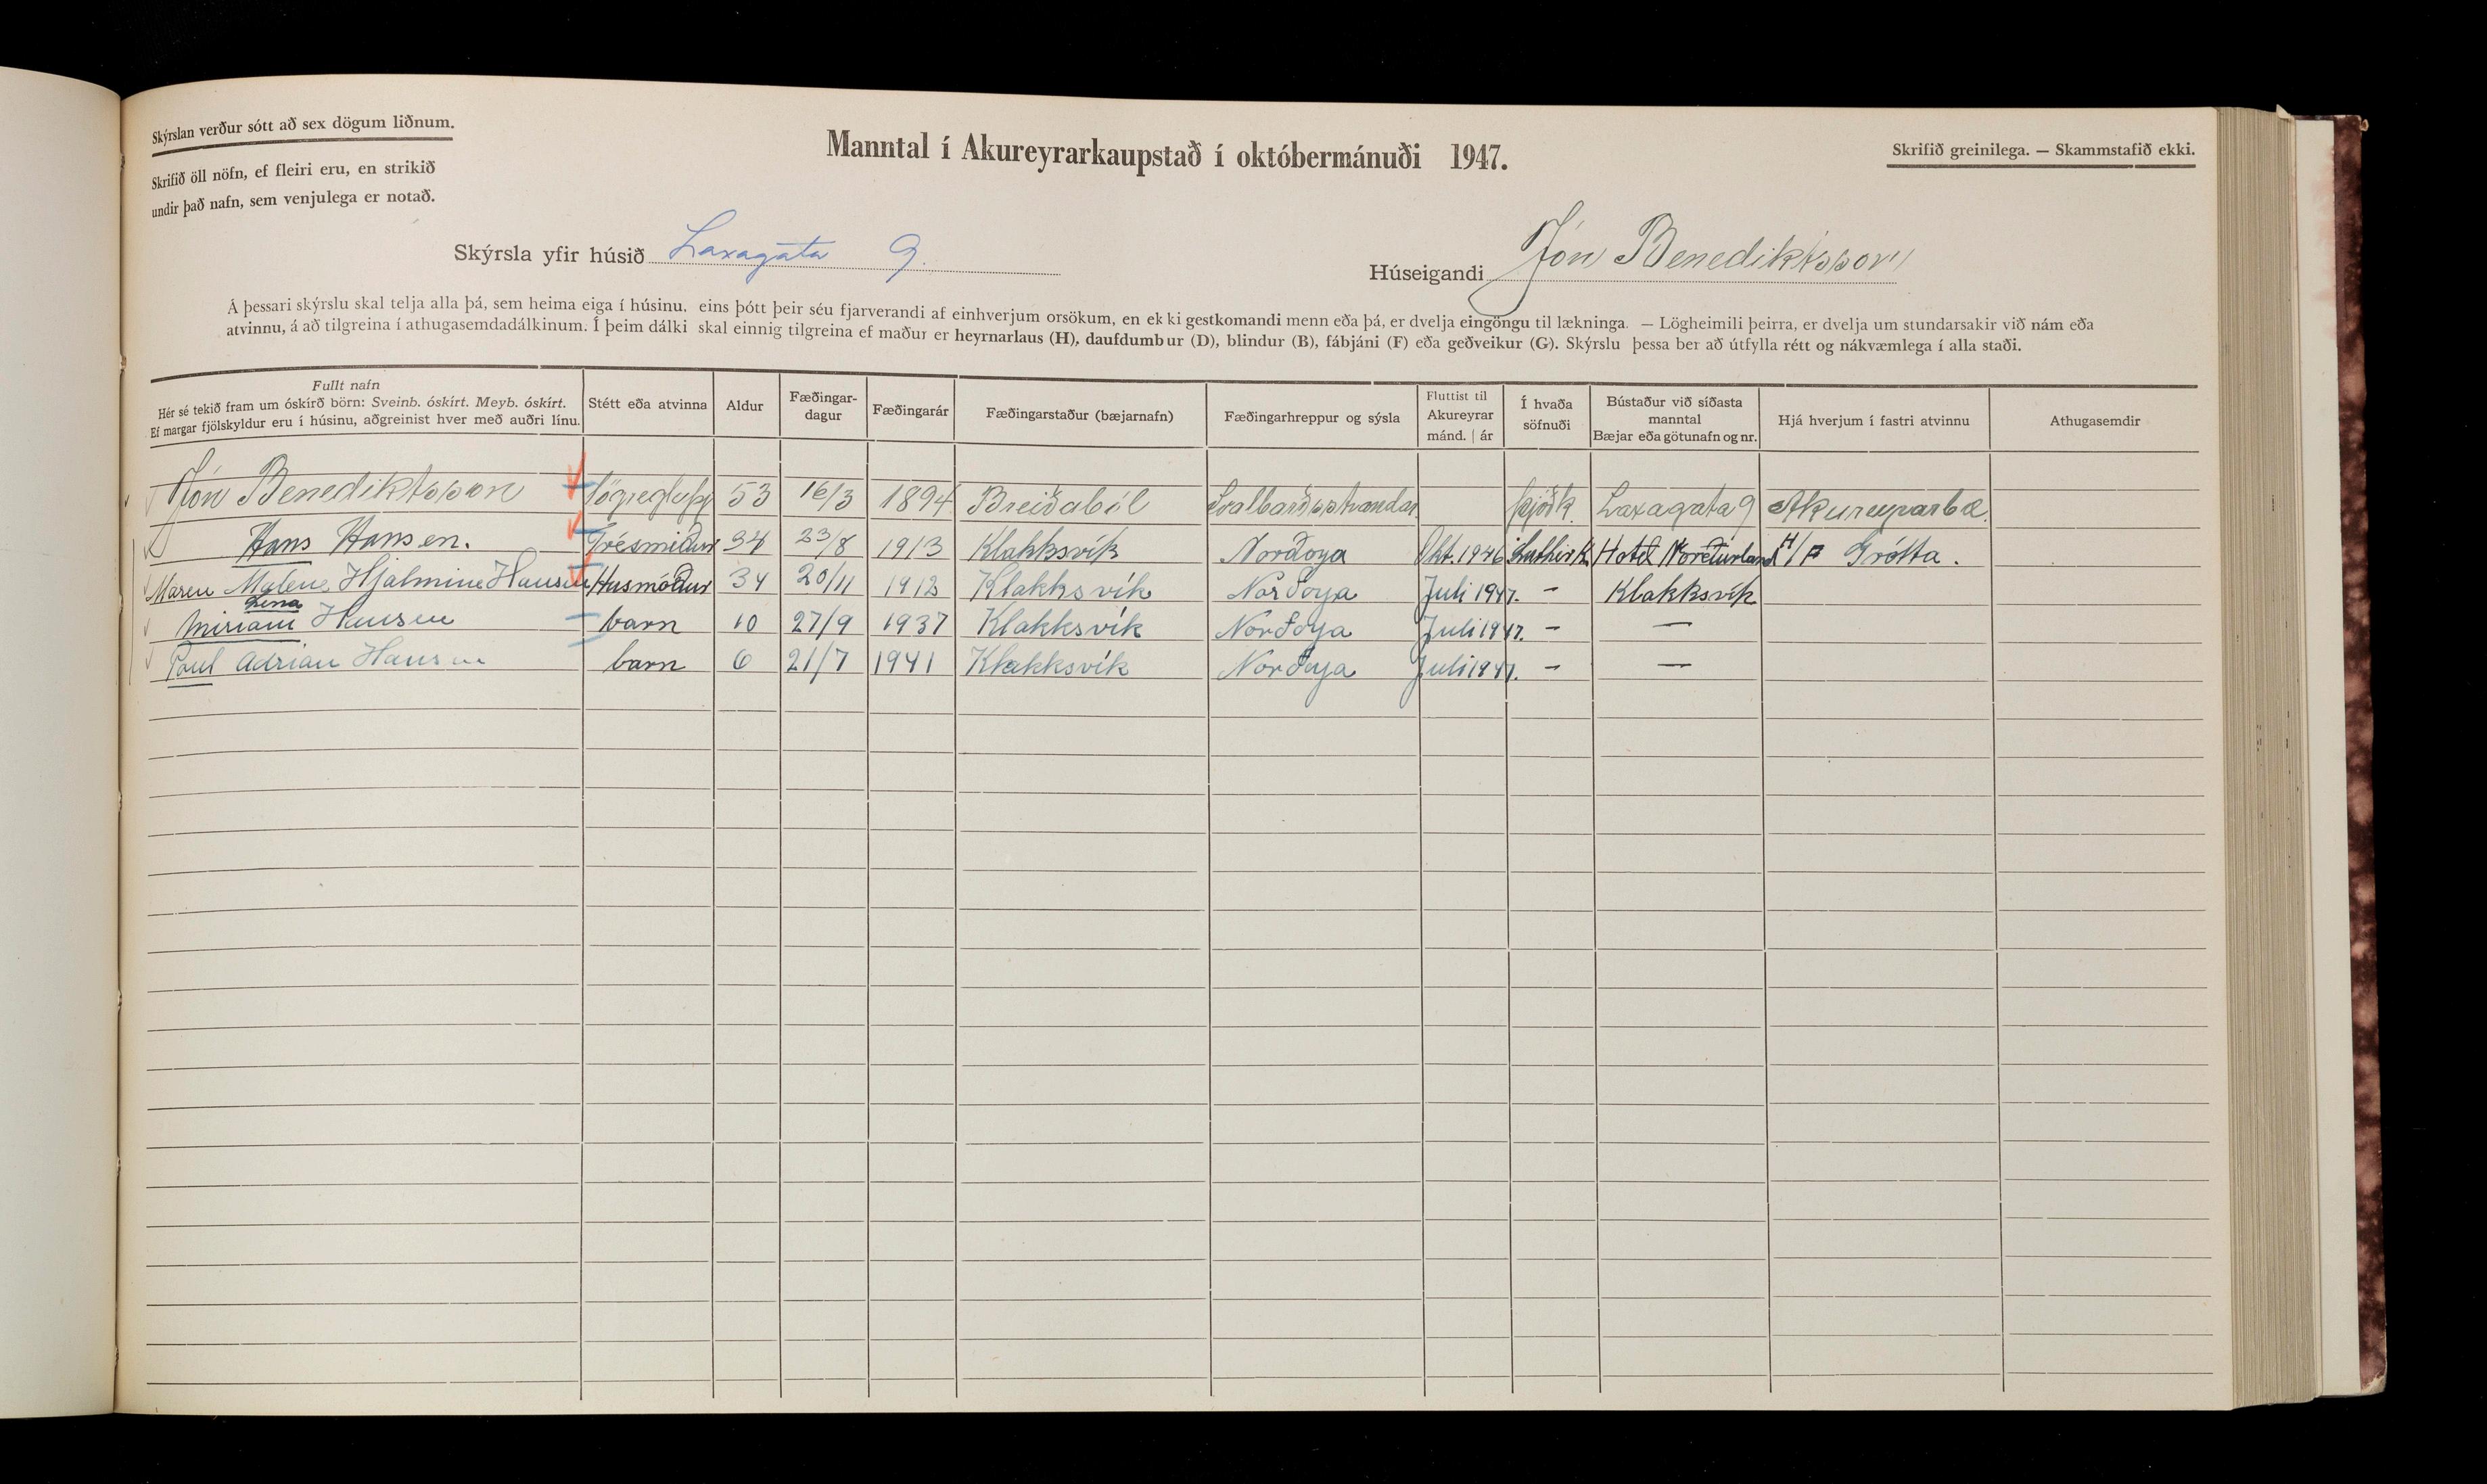 Skýrslan verður sótt að sex dögum liðnum.
Skrifið öll nöfn, ef fleiri eru, en strikið
undir það nafn, sem venjulega er notað.
Manntal í Akureyrarkaupstað í októbermánuði 1947.
Skrifið greinilega. — Skammstafið ekki.
Skýrsla yfir húsið Laxagata 9.
Húseigandi Jón Benediktsson
Á þessari skýrslu skal telja alla þá, sem heima eiga í húsinu, eins þótt þeir séu fjarverandi af einhverjum orsökum, en ekki gestkomandi menn eða þá, er dvelja eingöngu til lækninga. — Lögheimili þeirra, er dvelja um stundarsakir við nám eða
atvinnu, á að tilgreina í athugasemdadálkinum. Í þeim dálki skal einnig tilgreina ef maður er heyrnarlaus (H), daufdumbur (D), blindur (B), fábjáni (F) eða geðveikur (G). Skýrslu þessa ber að útfylla rétt og nákvæmlega í alla staði.
Fullt nafn
Hér sé tekið fram um óskírð börn: Sveinb. óskírt. Meyb. óskírt.
Ef margar fjölskyldur eru í húsinu, aðgreinist hver með auðri línu.
Stétt eða atvinna
Aldur
Fæðingar-
dagur
Fæðingarár
Fæðingarstaður (bæjarnafn)
Fæðingarhreppur og sýsla
Fluttist til
Akureyrar
mánd. | ár
Í hvaða
söfnuði
Bústaður við síðasta
manntal
Bæjar eða götunafn og nr.
Hjá hverjum í fastri atvinnu
Athugasemdir
Jón Benediktsson 53 16/3 1894 Breiðaból Svalbarðsstrandar Þjóðk. Laxagata 9 Akureyrarbæ.
Hans Hansen. Trésmiður 34 23/8 1913 Klakksvík Norðoya Okt. 1946 Luthirk. Hotel Norðurland H/F Grótta.
Maren Maléne Hjalmine Hansen Husmóður 34 20/11 1912 Klakksvík Norðoya Juli 1947. – Klakksvík
Lena
Miriam Hansen barn 10 27/9 1937 Klakksvík Norðoya Juli 1947. – —
Poul Adrian Hansen barn 6 21/7 1941 Klakksvík Norðoya Juli 1947. – —